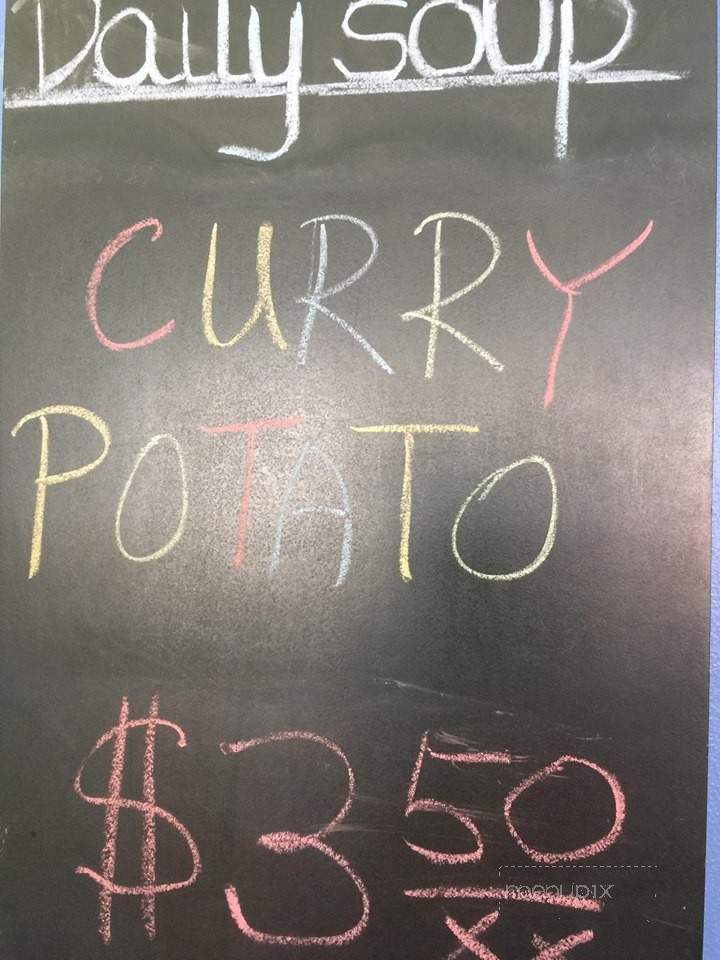 Daily soup
CURRY
POTATO
$3 50
xx
menupix